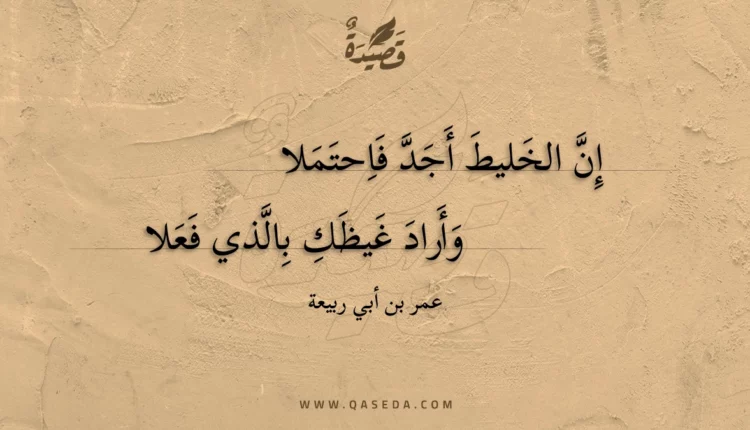 قَصِيدَةٌ
إِنَّ الخَليطَ أَجَدَّ فَاِحتَمَلا
وَأَرادَ غَيظَكِ بِالَّذي فَعَلا
عمر بن أبي ربيعة
WWW.QASEDA.COM